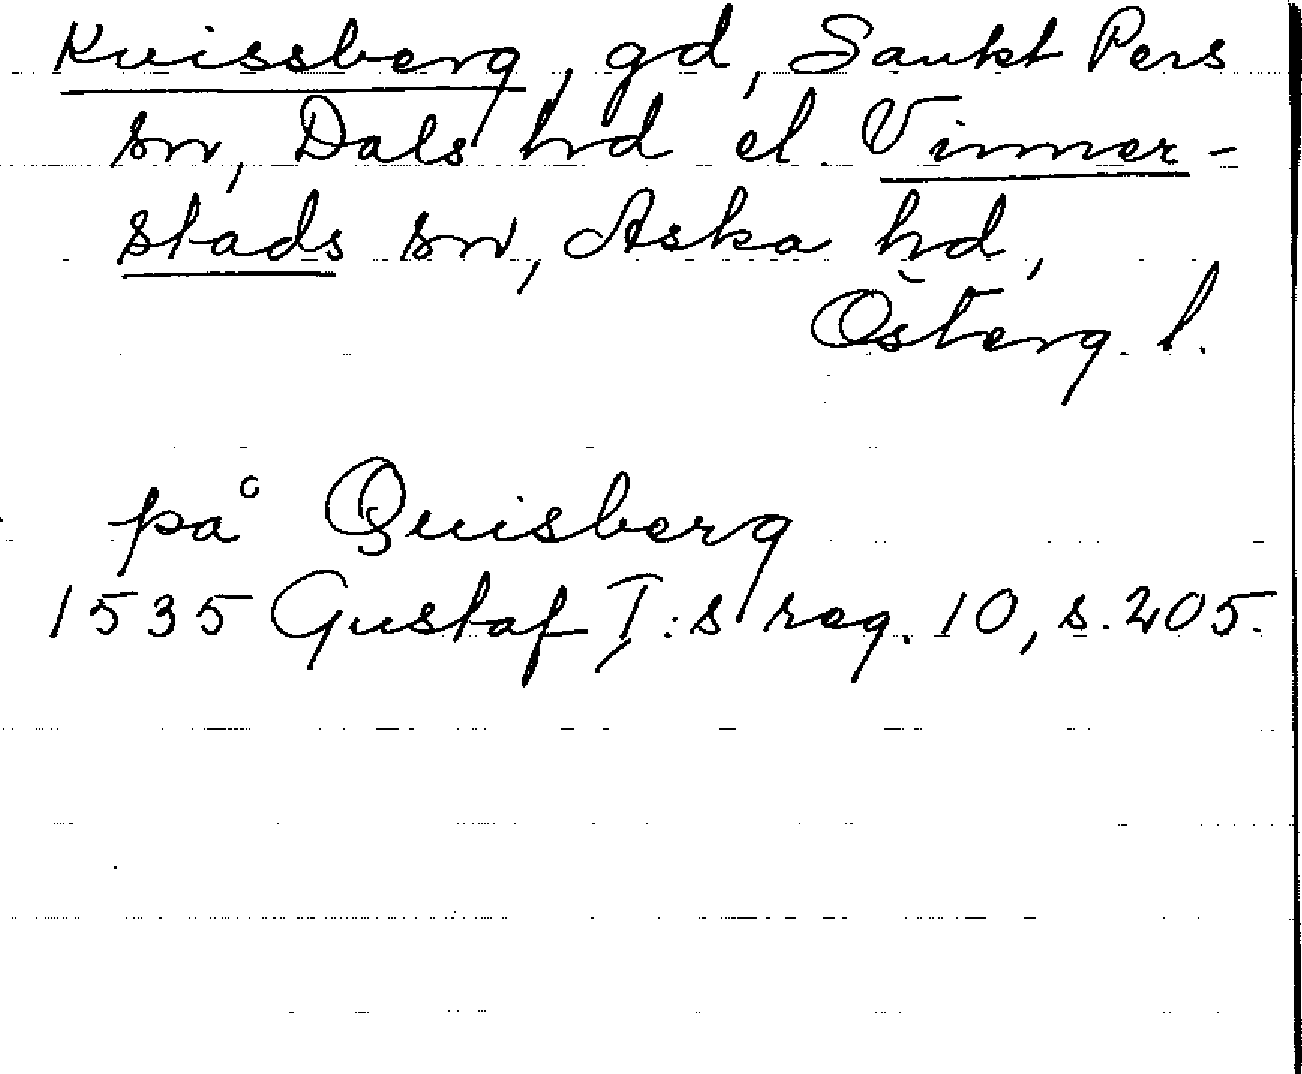 Kvissberg, gd, Sankt Pers
sn, Dals hd el. Vinner-
stads sn, Aska hd,
Österg. l.
på Quisberg
1535 Gustaf I:s reg. 10, s. 205.